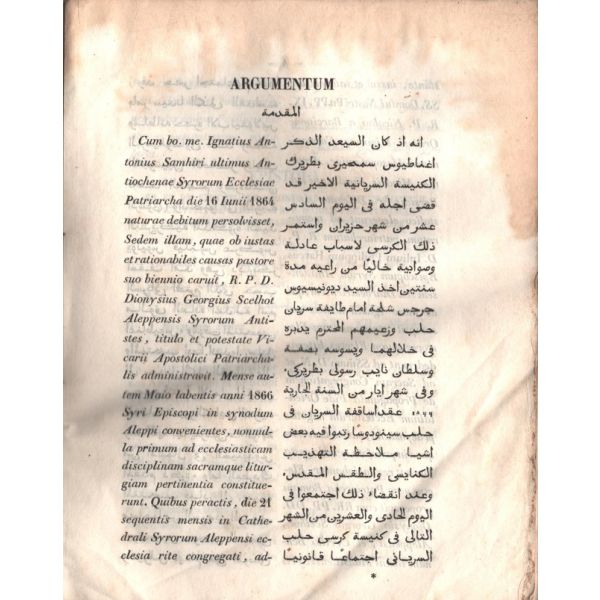 ARGUMENTUM
المقدمة
Cum bo. me. Ignatius An-
tonius Samhiri ultimus An-
tiochenae Syrorum Ecclesiae
Patriarcha die 16 Iunii 1864
naturae debitum persolvisset,
Sedem illam, quae ob iustas
et rationabiles causas pastore
suo biennio caruit, R. P. D.
Dionysius Georgius Scelhot
Aleppensis Syrorum Anti-
stes, titulo et potestate Vi-
carii Apostolici Patriarcha-
lis administravit. Mense au-
tem Maio labentis anni 1866
Syri Episcopi in synodum
Aleppi convenientes, nonnul-
la primum ad ecclesiasticam
disciplinam sacramque litur-
giam pertinentia constitue-
runt. Quibus peractis, die 21
sequentis mensis in Cathe-
drali Syrorum Aleppensi ec-
clesia rite congregati, ad-
انه اذ كان السيعد الذكر
اغناطيوس سمحيرى بطريرك
الكنيسة السريانية الاخير قد
قضى اجله فى اليوم السادس
عشر من شهر حزيران واستمر
ذلك الكرسى لاسباب عادلة
وصوابية خاليًا من راعيه مدة
سنتين اخذ السيد ديونيسيوس
جرجس شلحة امام طايفة سريان
حلب وزعيمهم المحترم يدبره
فى خلالهما ويسوسه بصفة
وسلطان نايب رسولى بطريركى.
وفى شهر ايار من السنة الجارية
١٨٦٦ عقد اساقفة السريان فى
حلب سينودوسًا رتبوا فيه بعض
اشيا ملاحظة التهذيب
الكنايسى والطقس المقدس.
وعند انقضاء ذلك اجتمعوا فى
اليوم الحادى والعشرين من الشهر
التالى فى كنيسة كرسى حلب
السريانى اجتماعًا قانونيًا
*